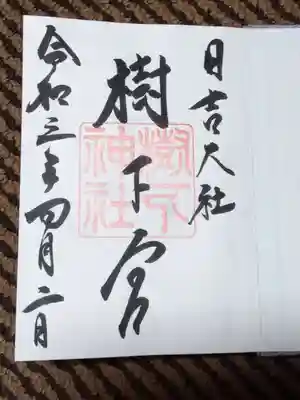 日吉大社
樹下宮
樹下神社
令和三年四月二日